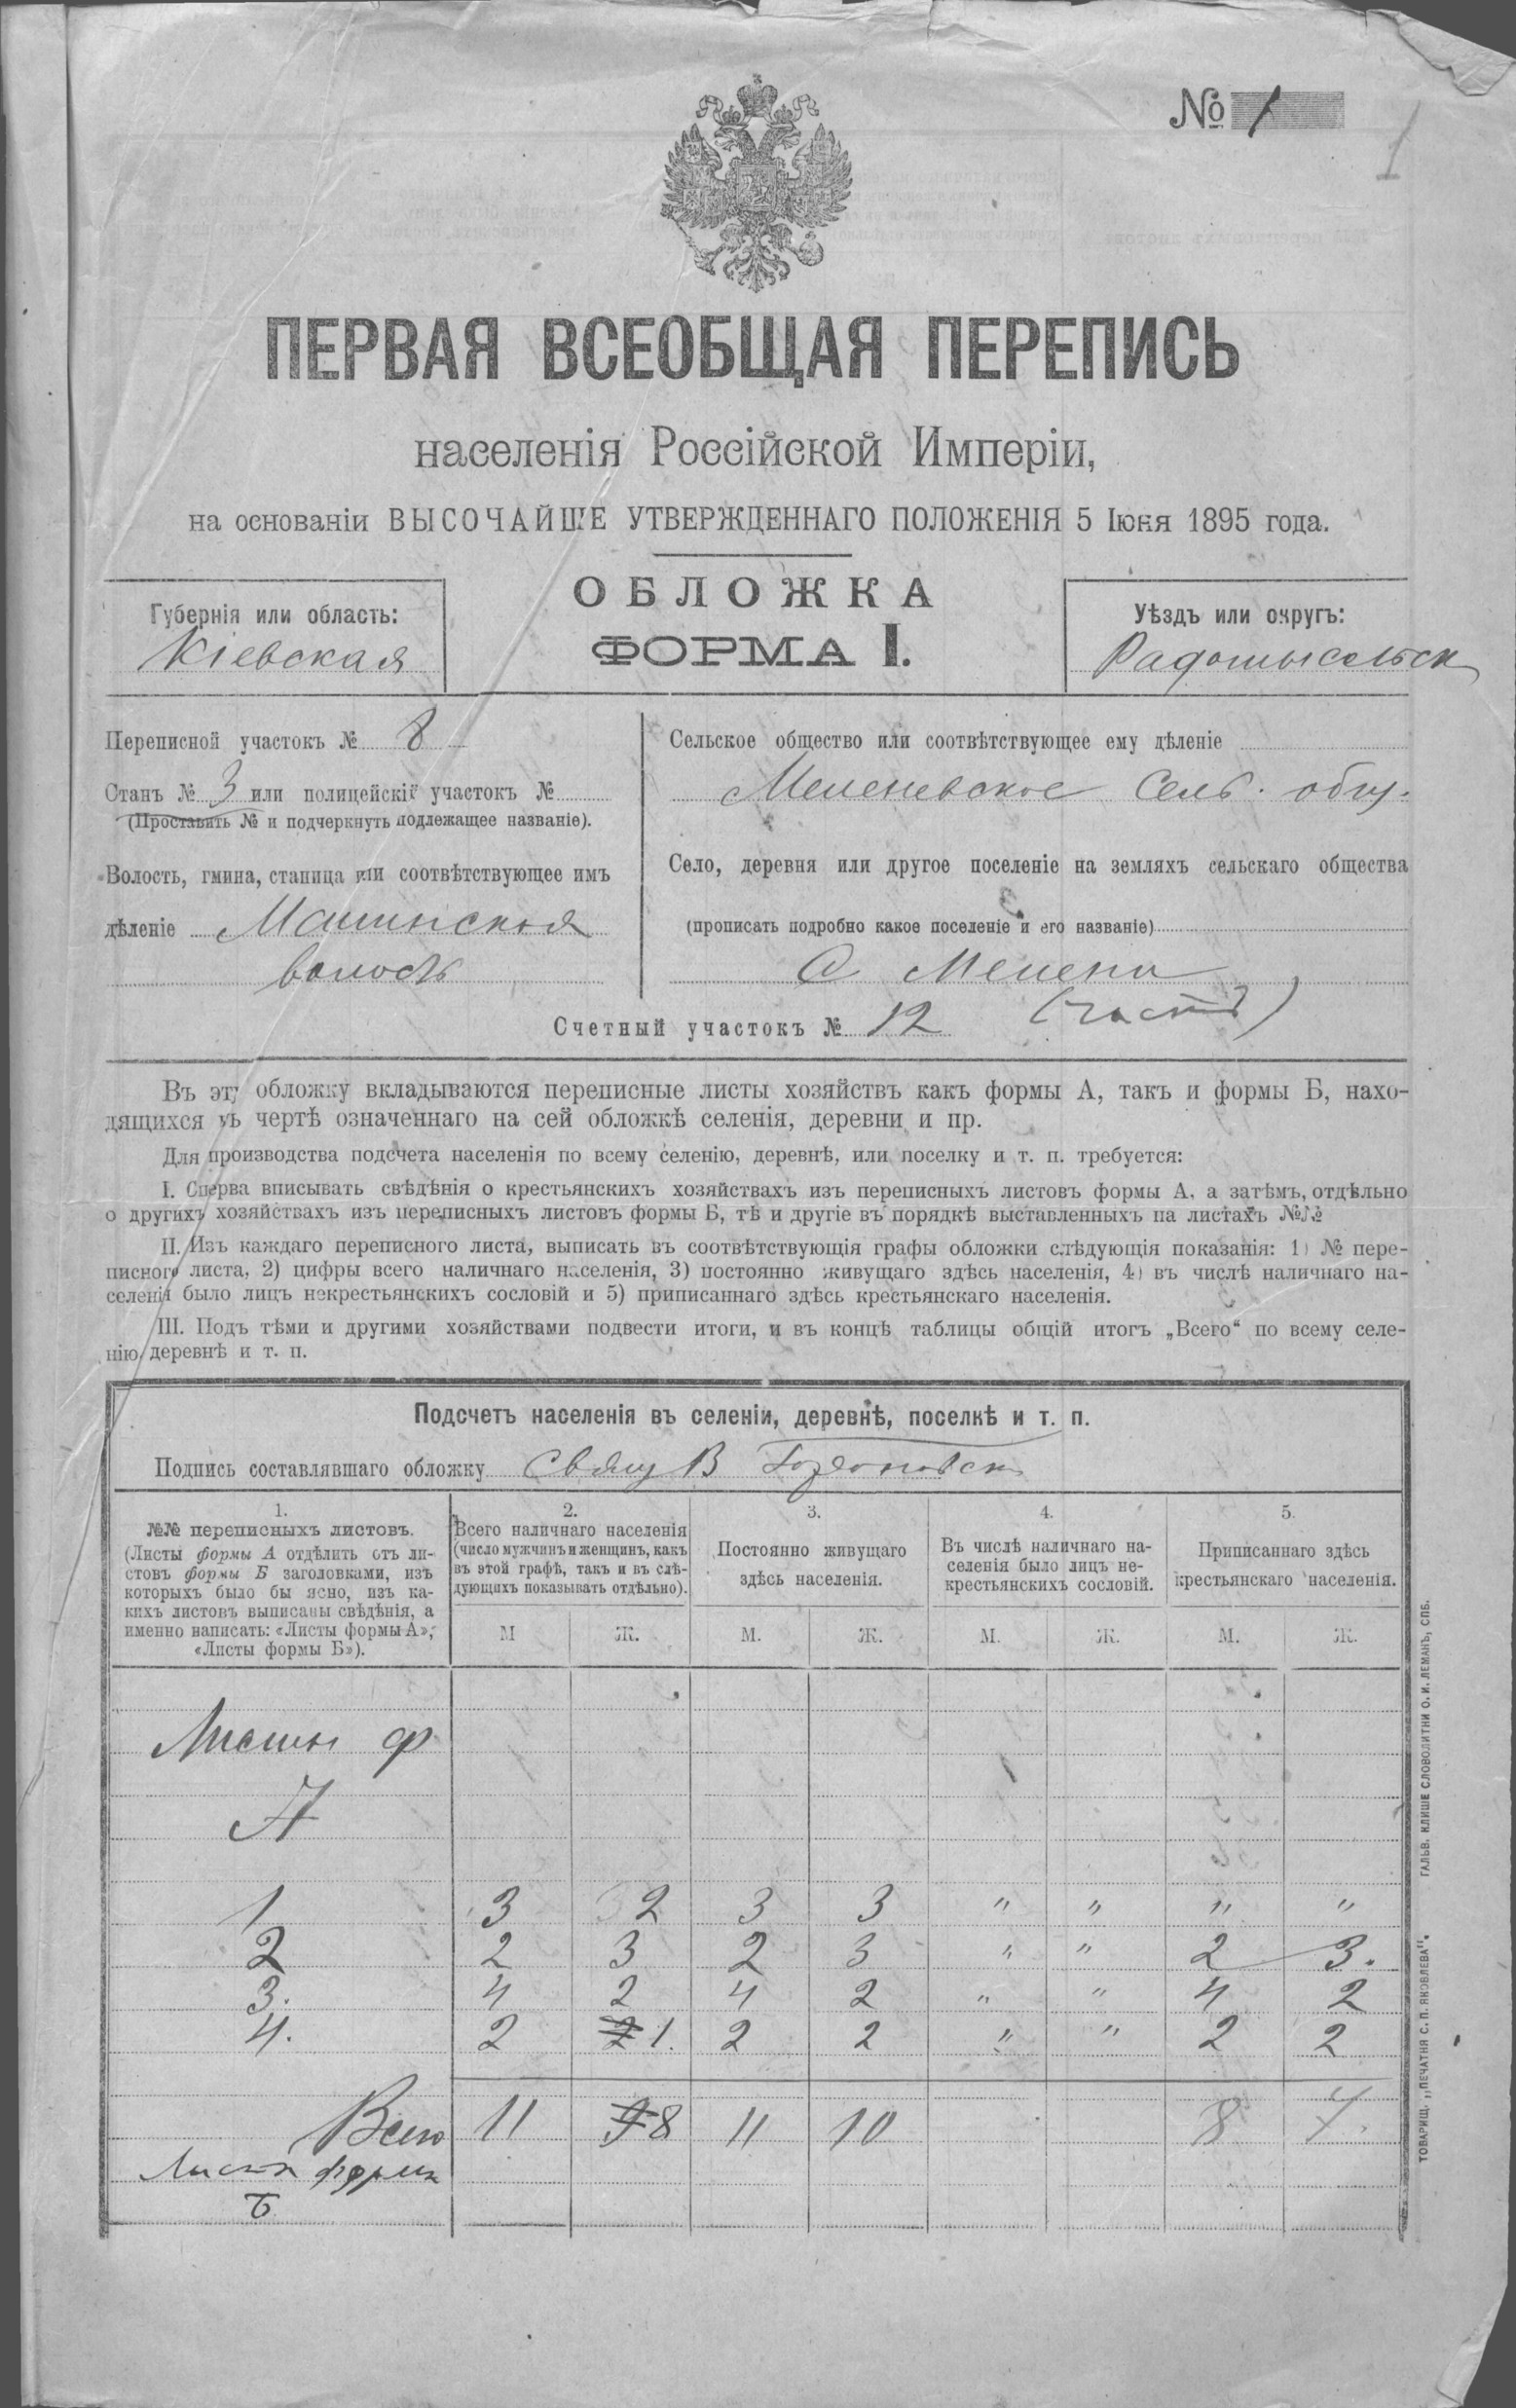 № 1
1
ПЕРВАЯ ВСЕОБЩАЯ ПЕРЕПИСЬ
населенія Россійской Имперіи,
на основаніи ВЫСОЧАЙШЕ УТВЕРЖДЕННАГО ПОЛОЖЕНІЯ 5 Іюня 1895 года.
ОБЛОЖКА
ФОРМА I.
Губернія или область:
Кіевская
Уѣздъ или округъ:
Радомысельск
Переписной участокъ № 8
Станъ № 3 или полицейскій участокъ №
(Проставить № и подчеркнуть подлежащее названіе).
Волость, гмина, станица или соотвѣтствующее имъ
дѣленіе
волость
Сельское общество или соотвѣтствующее ему дѣленіе
Меленевское Сель. общ.
Село, деревня или другое поселеніе на земляхъ сельскаго общества
(прописать подробно какое поселеніе и его названіе)
С Мелени
(часть)
Счетный участокъ № 12
Въ эту обложку вкладываются переписные листы хозяйствъ какъ формы А, такъ и формы Б, нахо-
дящихся въ чертѣ означеннаго на сей обложкѣ селенія, деревни и пр.
Для производства подсчета населенія по всему селенію, деревнѣ, или поселку и т. п. требуется:
I. Сперва вписывать свѣдѣнія о крестьянскихъ хозяйствахъ изъ переписныхъ листовъ формы А, а затѣмъ, отдѣльно
о другихъ хозяйствахъ изъ переписныхъ листовъ формы Б, тѣ и другіе въ порядкѣ выставленныхъ на листахъ №№
II. Изъ каждаго переписного листа, выписать въ соотвѣтствующія графы обложки слѣдующія показанія: 1) № пере-
писного листа, 2) цифры всего наличнаго населенія, 3) постоянно живущаго здѣсь населенія, 4) въ числѣ наличнаго на-
селенія было лицъ некрестьянскихъ сословій и 5) приписаннаго здѣсь крестьянскаго населенія.
III. Подъ тѣми и другими хозяйствами подвести итоги, и въ концѣ таблицы общій итогъ „Всего“ по всему селе-
нію, деревнѣ и т. п.
Подсчетъ населенія въ селеніи, деревнѣ, поселкѣ и т. п.
Подпись составлявшаго обложку Свящ В
1.
№№ переписныхъ листовъ.
(Листы формы А отдѣлить отъ ли-
стовъ формы Б заголовками, изъ
которыхъ было бы ясно, изъ ка-
кихъ листовъ выписаны свѣдѣнія, а
именно написать: «Листы формы А»,
«Листы формы Б»).
2.
Всего наличнаго населенія
(число мужчинъ и женщинъ, какъ
въ этой графѣ, такъ и въ слѣ-
дующихъ показывать отдѣльно).
3.
Постоянно живущаго
здѣсь населенія.
4.
Въ числѣ наличнаго на-
селенія было лицъ не-
крестьянскихъ сословій.
5.
Приписаннаго здѣсь
крестьянскаго населенія.
М Ж. М. Ж. М. Ж. М. Ж.
Листы ф
А
1 3 2 3 3 " " " "
2 2 3 2 3 " " 2 3.
3. 4 2 4 2 " " 4 2
4. 2 2 1. 2 2 " " 2 2
Всего 11 9 8 11 10 8 7.
Листы формы
Б
ТОВАРИЩ. „ПЕЧАТНЯ С. П. ЯКОВЛЕВА“. ГАЛЬВ. КЛИШЕ СЛОВОЛИТНИ О. И. ЛЕМАНЪ, СПБ.